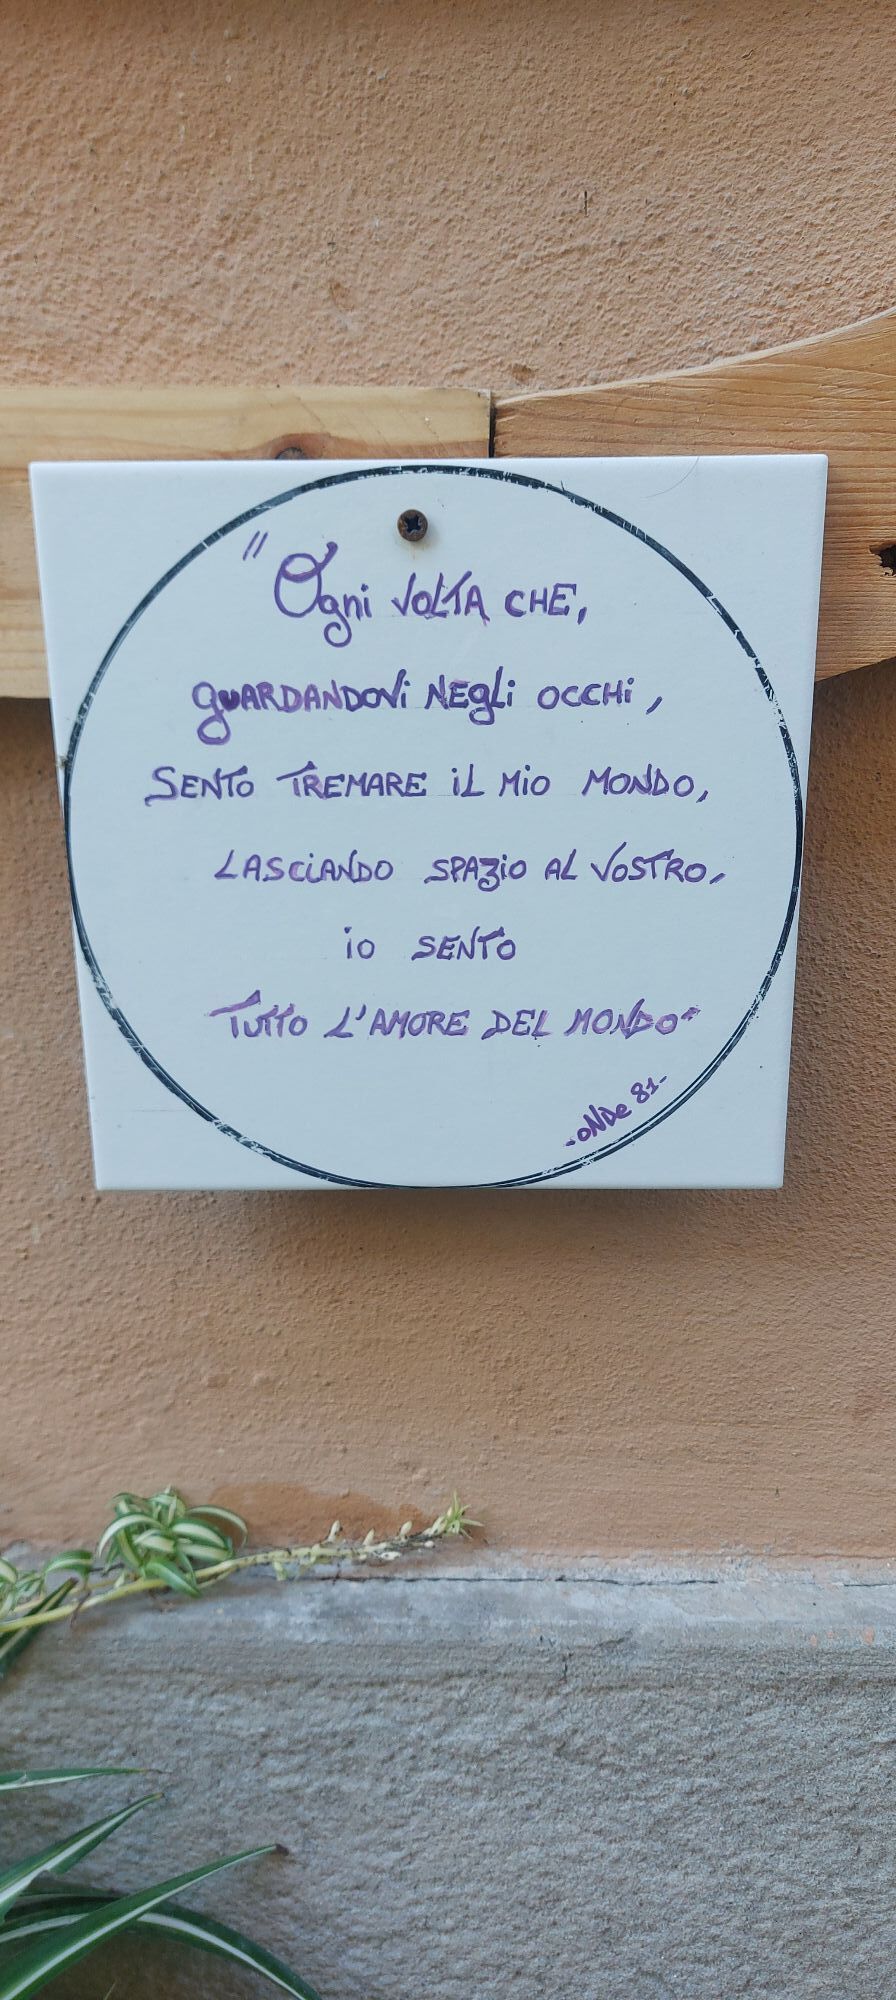 "Ogni VOLTA CHE,
guARDANDOVi NEgLi OCCHi,
SENTO TREMARE iL MiO MONDO,
LASCiANDO SPAZiO AL VOSTRO,
iO SENTO
TUTTO L'AMORE DEL MONDO"
-ONDe 81-